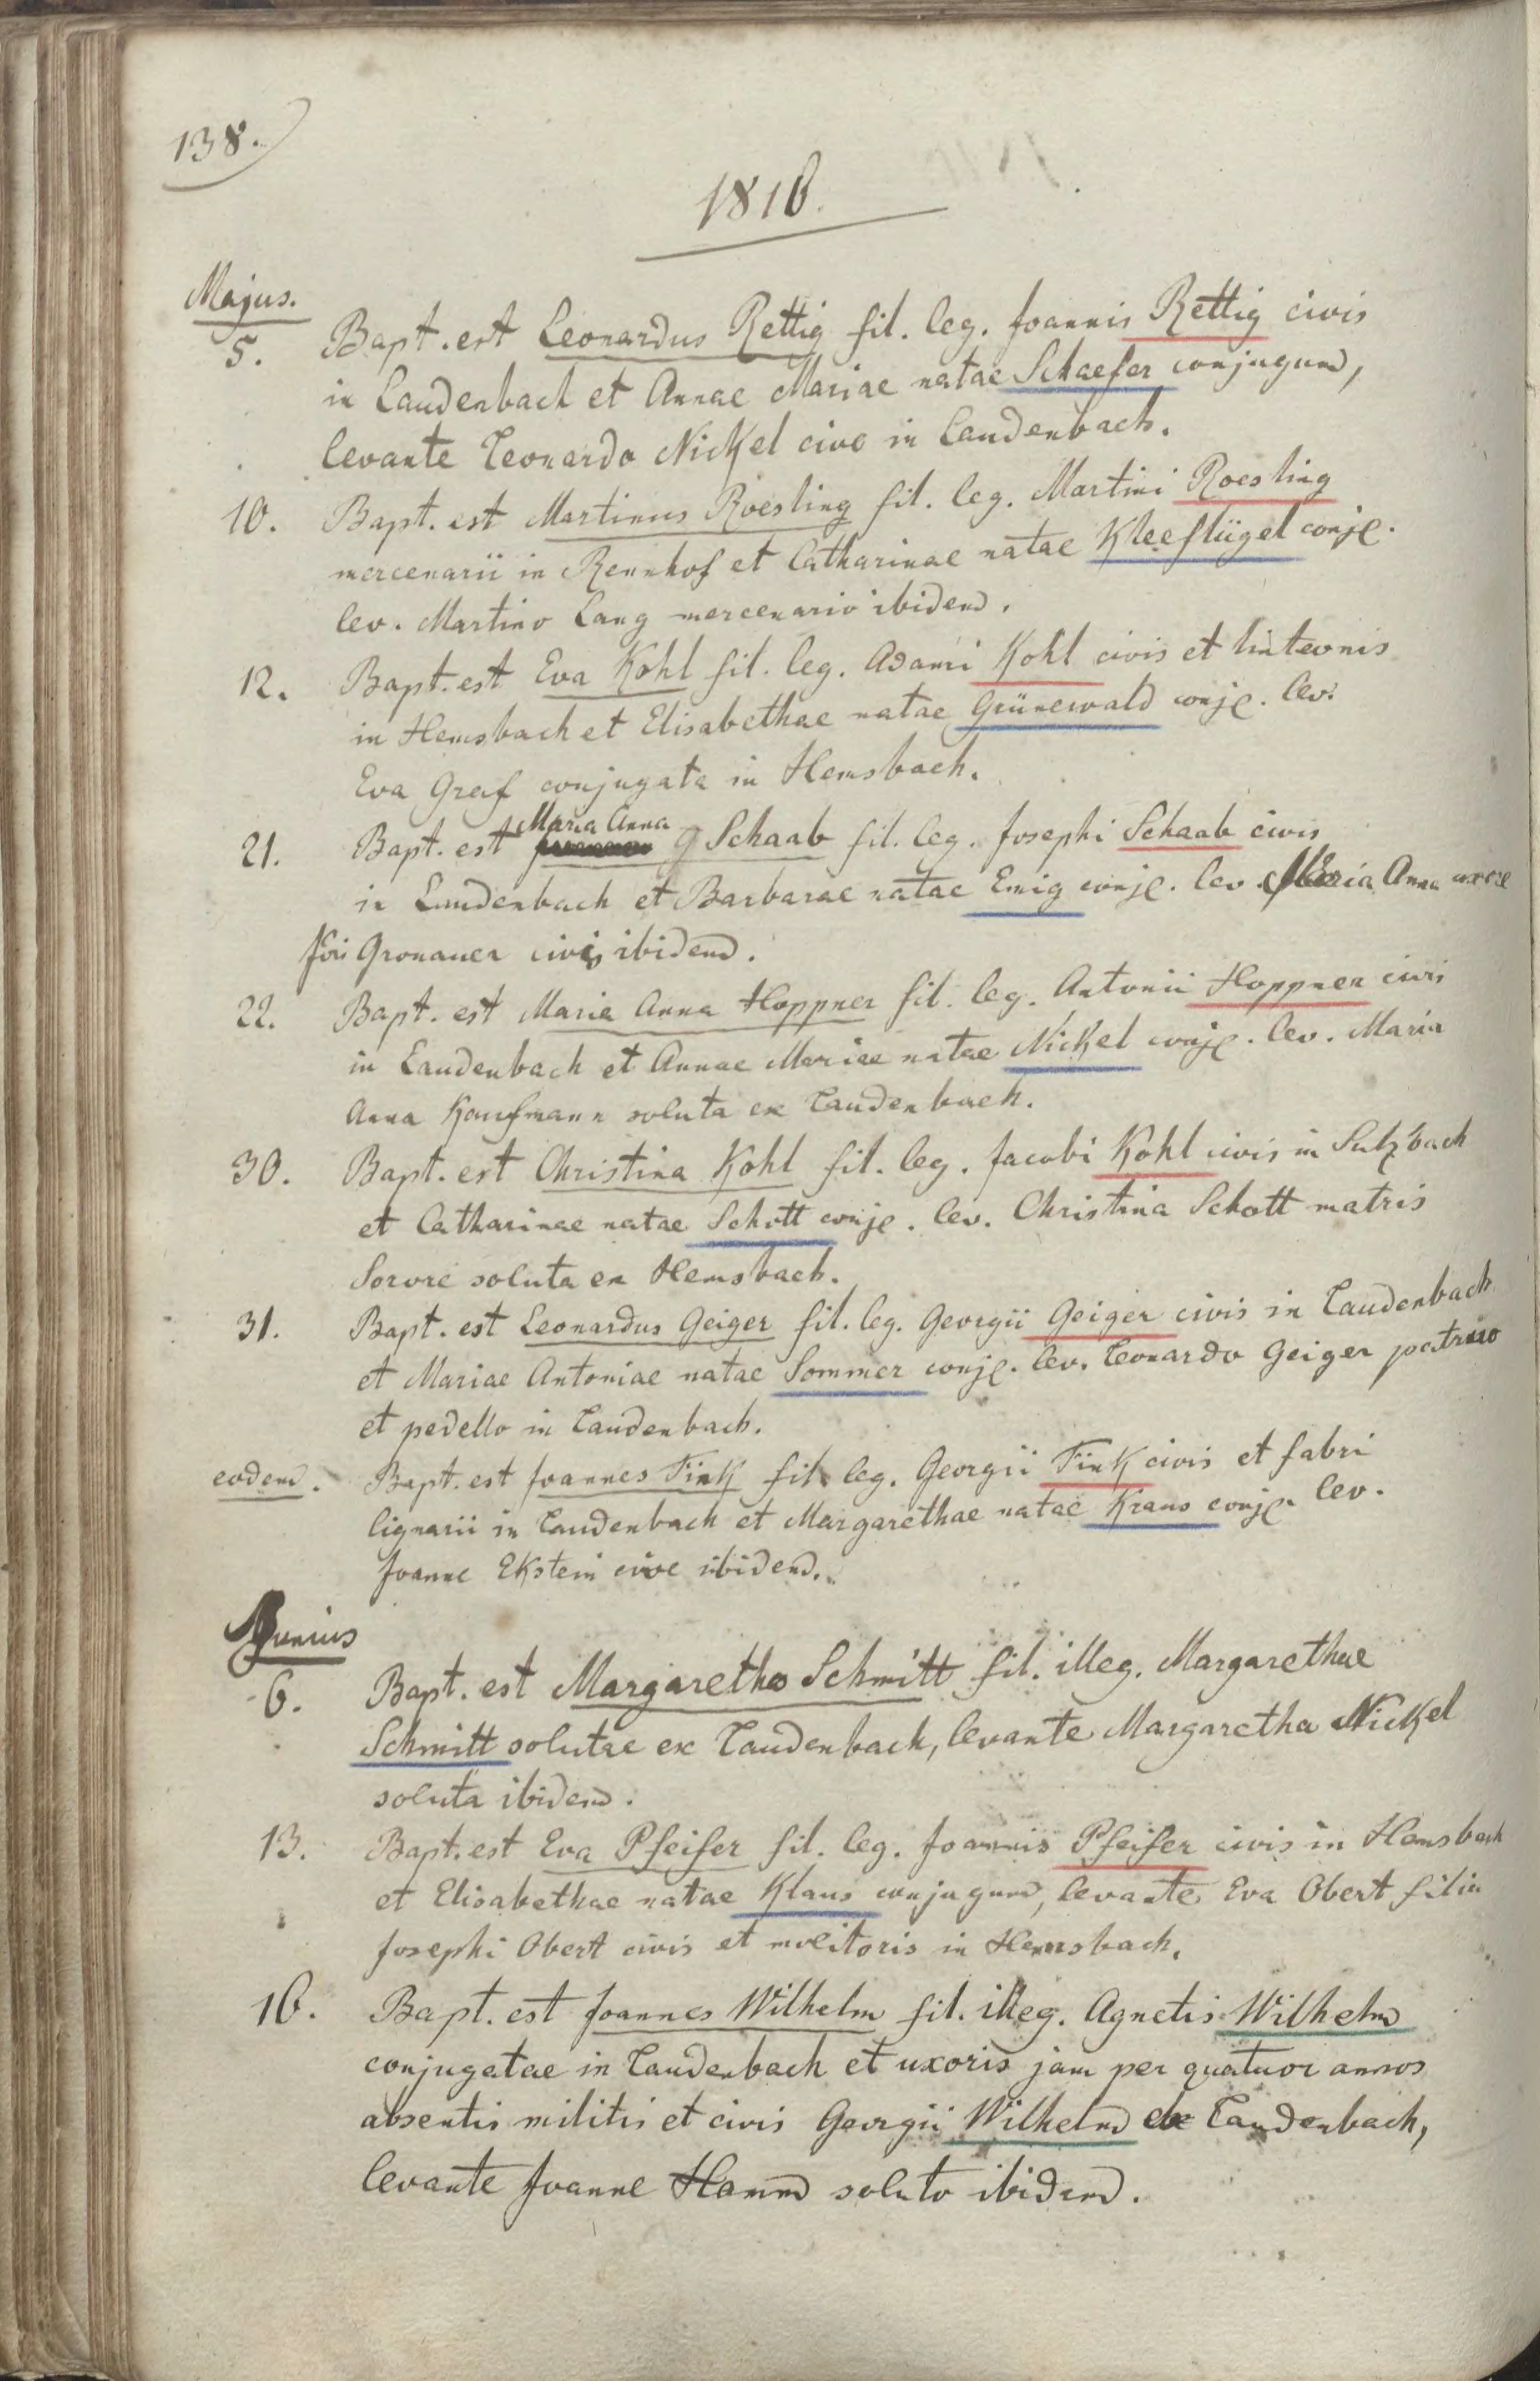 138.
1816.
Majus.
5. Bapt. est Leonardus Rettig fil. leg. Joannis Rettig civis
in Laudenbach et Annae Mariae natae Schaefer conjugum,
levante Leonardo Nickel cive in Laudenbach.
10. Bapt. est Martinus Roesling fil. leg. Martini Roesling
mercenarii in Rennhof et Catharinae natae Kleeflügel conjg.
lev. Martino Lang mercenario ibidem.
12. Bapt. est Eva Kohl fil. leg. Adami Kohl civis et linteonis
in Hemsbach et Elisabethae natae Grünewald conjg. lev.
Eva Graf conjugata in Hemsbach.
Maria Anna
21. Bapt. est Schaab fil. leg. Josephi Schaab civis
in Laudenbach et Barbarae natae Emig conjg. lev. Maria Anna uxore
Jois Gronauer civis ibidem.
22. Bapt. est Maria Anna Hoppner fil. leg. Antonii Hoppner civis
in Laudenbach et Annae Mariae natae Nickel conjg. lev. Maria
Anna Kaufmann soluta ex Laudenbach.
30. Bapt. est Christina Kohl fil. leg. Jacobi Kohl civis in Sulzbach
et Catharinae natae Schott conjg. lev. Christina Schott matris
Sorore soluta ex Hemsbach.
31. Bapt. est Leonardus Geiger fil. leg. Georgii Geiger civis in Laudenbach
et Mariae Antoniae natae Sommer conjg. lev. Leonardo Geiger patruo
et pedello in Laudenbach.
eodem. Bapt. est Joannes Fink fil. leg. Georgii Fink civis et fabri
lignarii in Laudenbach et Margarethae natae Kraus conjg. lev.
Joanne Ekstein cive ibidem.
Junius
6. Bapt. est Margaretha Schmitt fil. illeg. Margarethae
Schmitt solutae ex Laudenbach, levante Margaretha Nickel
soluta ibidem.
13. Bapt. est Eva Pfeifer fil. leg. Joannis Pfeifer civis in Hemsbach
et Elisabethae natae Klaus conjugum, levante Eva Obert filia
Josephi Obert civis et molitoris in Hemsbach.
16. Bapt. est Joannes Wilhelm fil. illeg. Agnetis Wilhelm
conjugatae in Laudenbach et uxoris jam per quatuor annos
absentis militis et civis Georgii Wilhelm ex Laudenbach,
levante Joanne Hamm soluto ibidem.